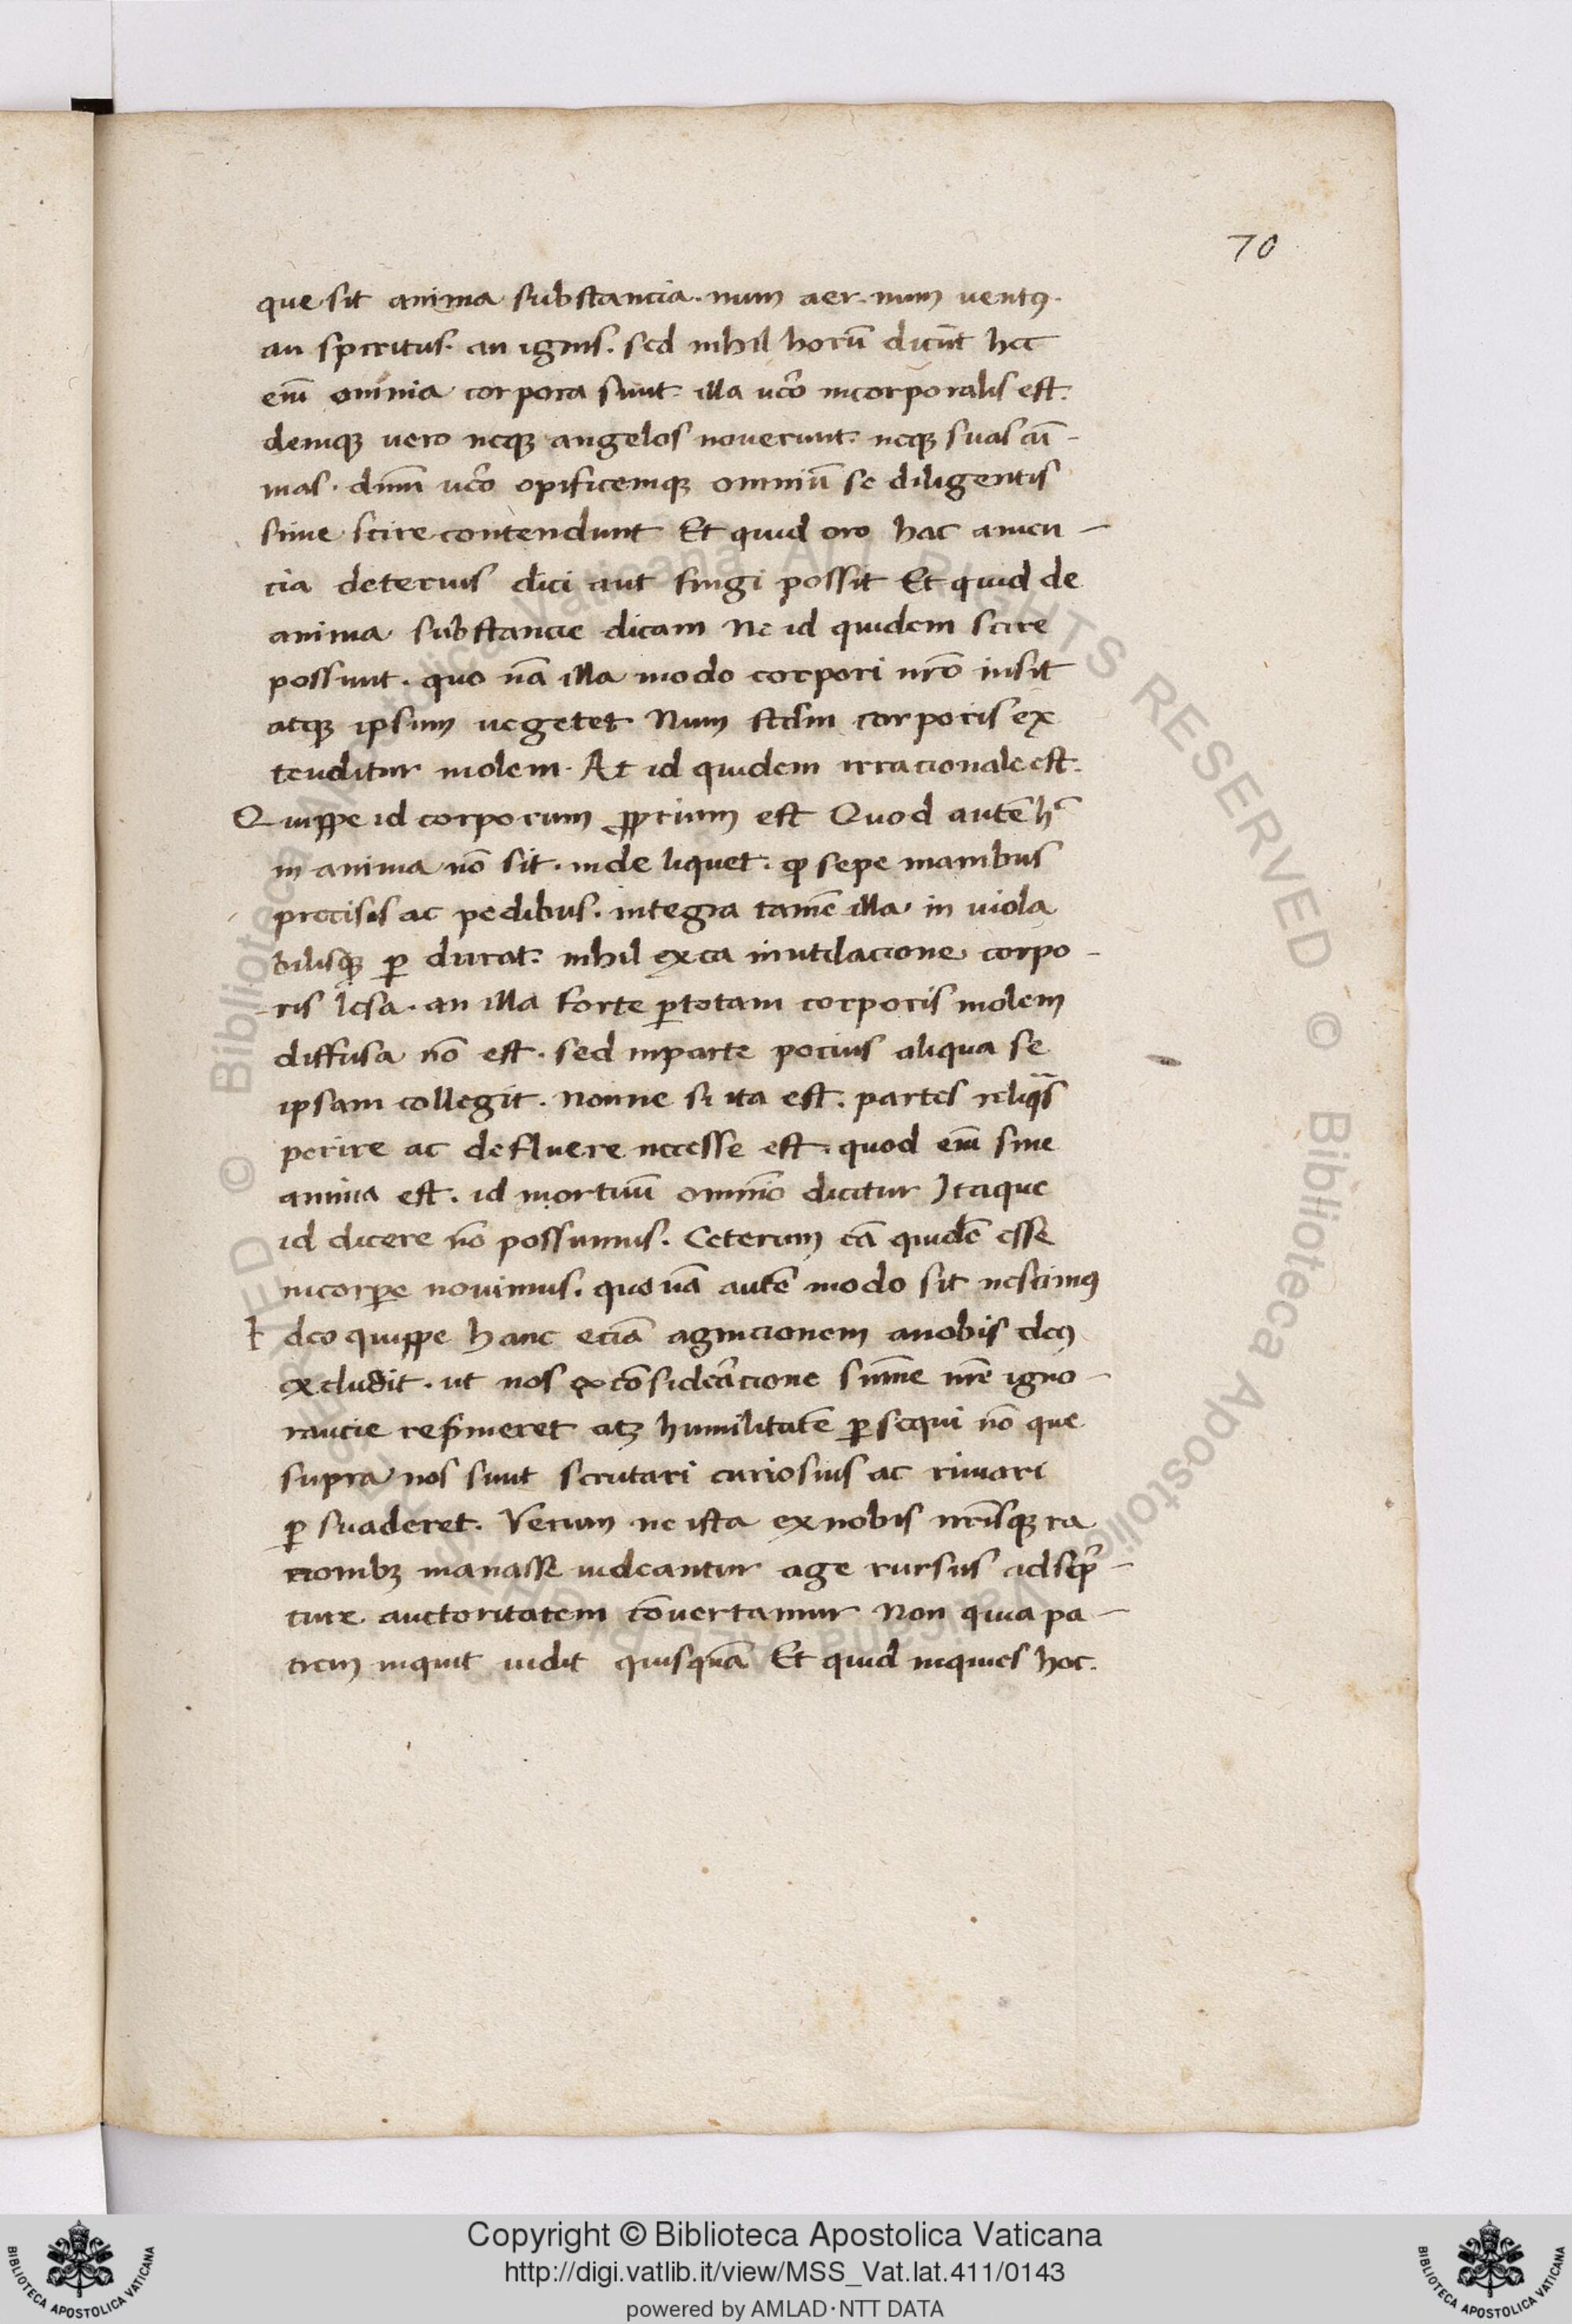 70
que sit anima substancia. num aer. num uentꝯ.
an spiritus. an ignis. sed nihil horū dicūt hec
em̄ omnia corpora sunt. illa uo᷒ incorporalis est.
deniqꝫ uero neqꝫ angelos nouerunt. neqꝫ suas ani-
mas. dnm̄ uo᷒ opificemqꝫ omniū se diligentis
sime scire contendunt Et quid oro hac amen-
cia deterius dici aut fingi possit Et quid de
anima substancie dicam Ne id quidem scire
possunt. quo nā illa modo corpori nrō insit
atqꝫ ipsum uegetet Num scdm corporis ex
tenditur molem. At id quidem irracionale est.
Quippe id corporum ꝓprium est Quod autē hꝰ
in anima nō sit. inde liquet. ꝙ sepe manibus
precisis ac pedibus. integra tamē illa in uiola
bilisqꝫ ꝑ durat. nihil ex ea mutilacione corpo-
ris lesa. an illa forte ꝑ totam corporis molem
diffusa nō est. sed in parte pocius aliqua se
ipsam collegit. nonne si ita est. partes reliqs̄
perire ac defluere necesse est. quod em̄ sine
anima est. id mortuū omnīo dicitur Itaque
id dicere nō possumus. Ceterum eā quidē esse
in corꝑe nouimus. quo nā autē modo sit nescimꝯ
Ideo quippe hanc eciā agnicionem a nobis deꝯ
excludit. ut nos ex cōsideracione summe nrē igno-
rancie reprimeret atqꝫ humilitatē ꝑ sequi nō que
supra nos sunt scrutari curiosius ac rimari
ꝑ suaderet. Verum ne ista ex nobis nrīsqꝫ ra
cionibꝫ manasse uideantur age rursus ad scrip-
ture auctoritatem cōuertamur Non quia pa-
trem inquit uidit quisquā Et quid inquies hoc.
Copyright © Biblioteca Apostolica Vaticana
http://digi.vatlib.it/view/MSS_Vat.lat.411/0143
powered by AMLAD·NTT DATA